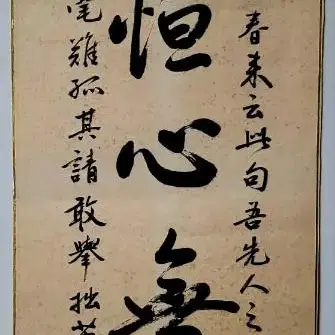 春来云此句吾先人之
恒心無
難孤其請敢舉拙